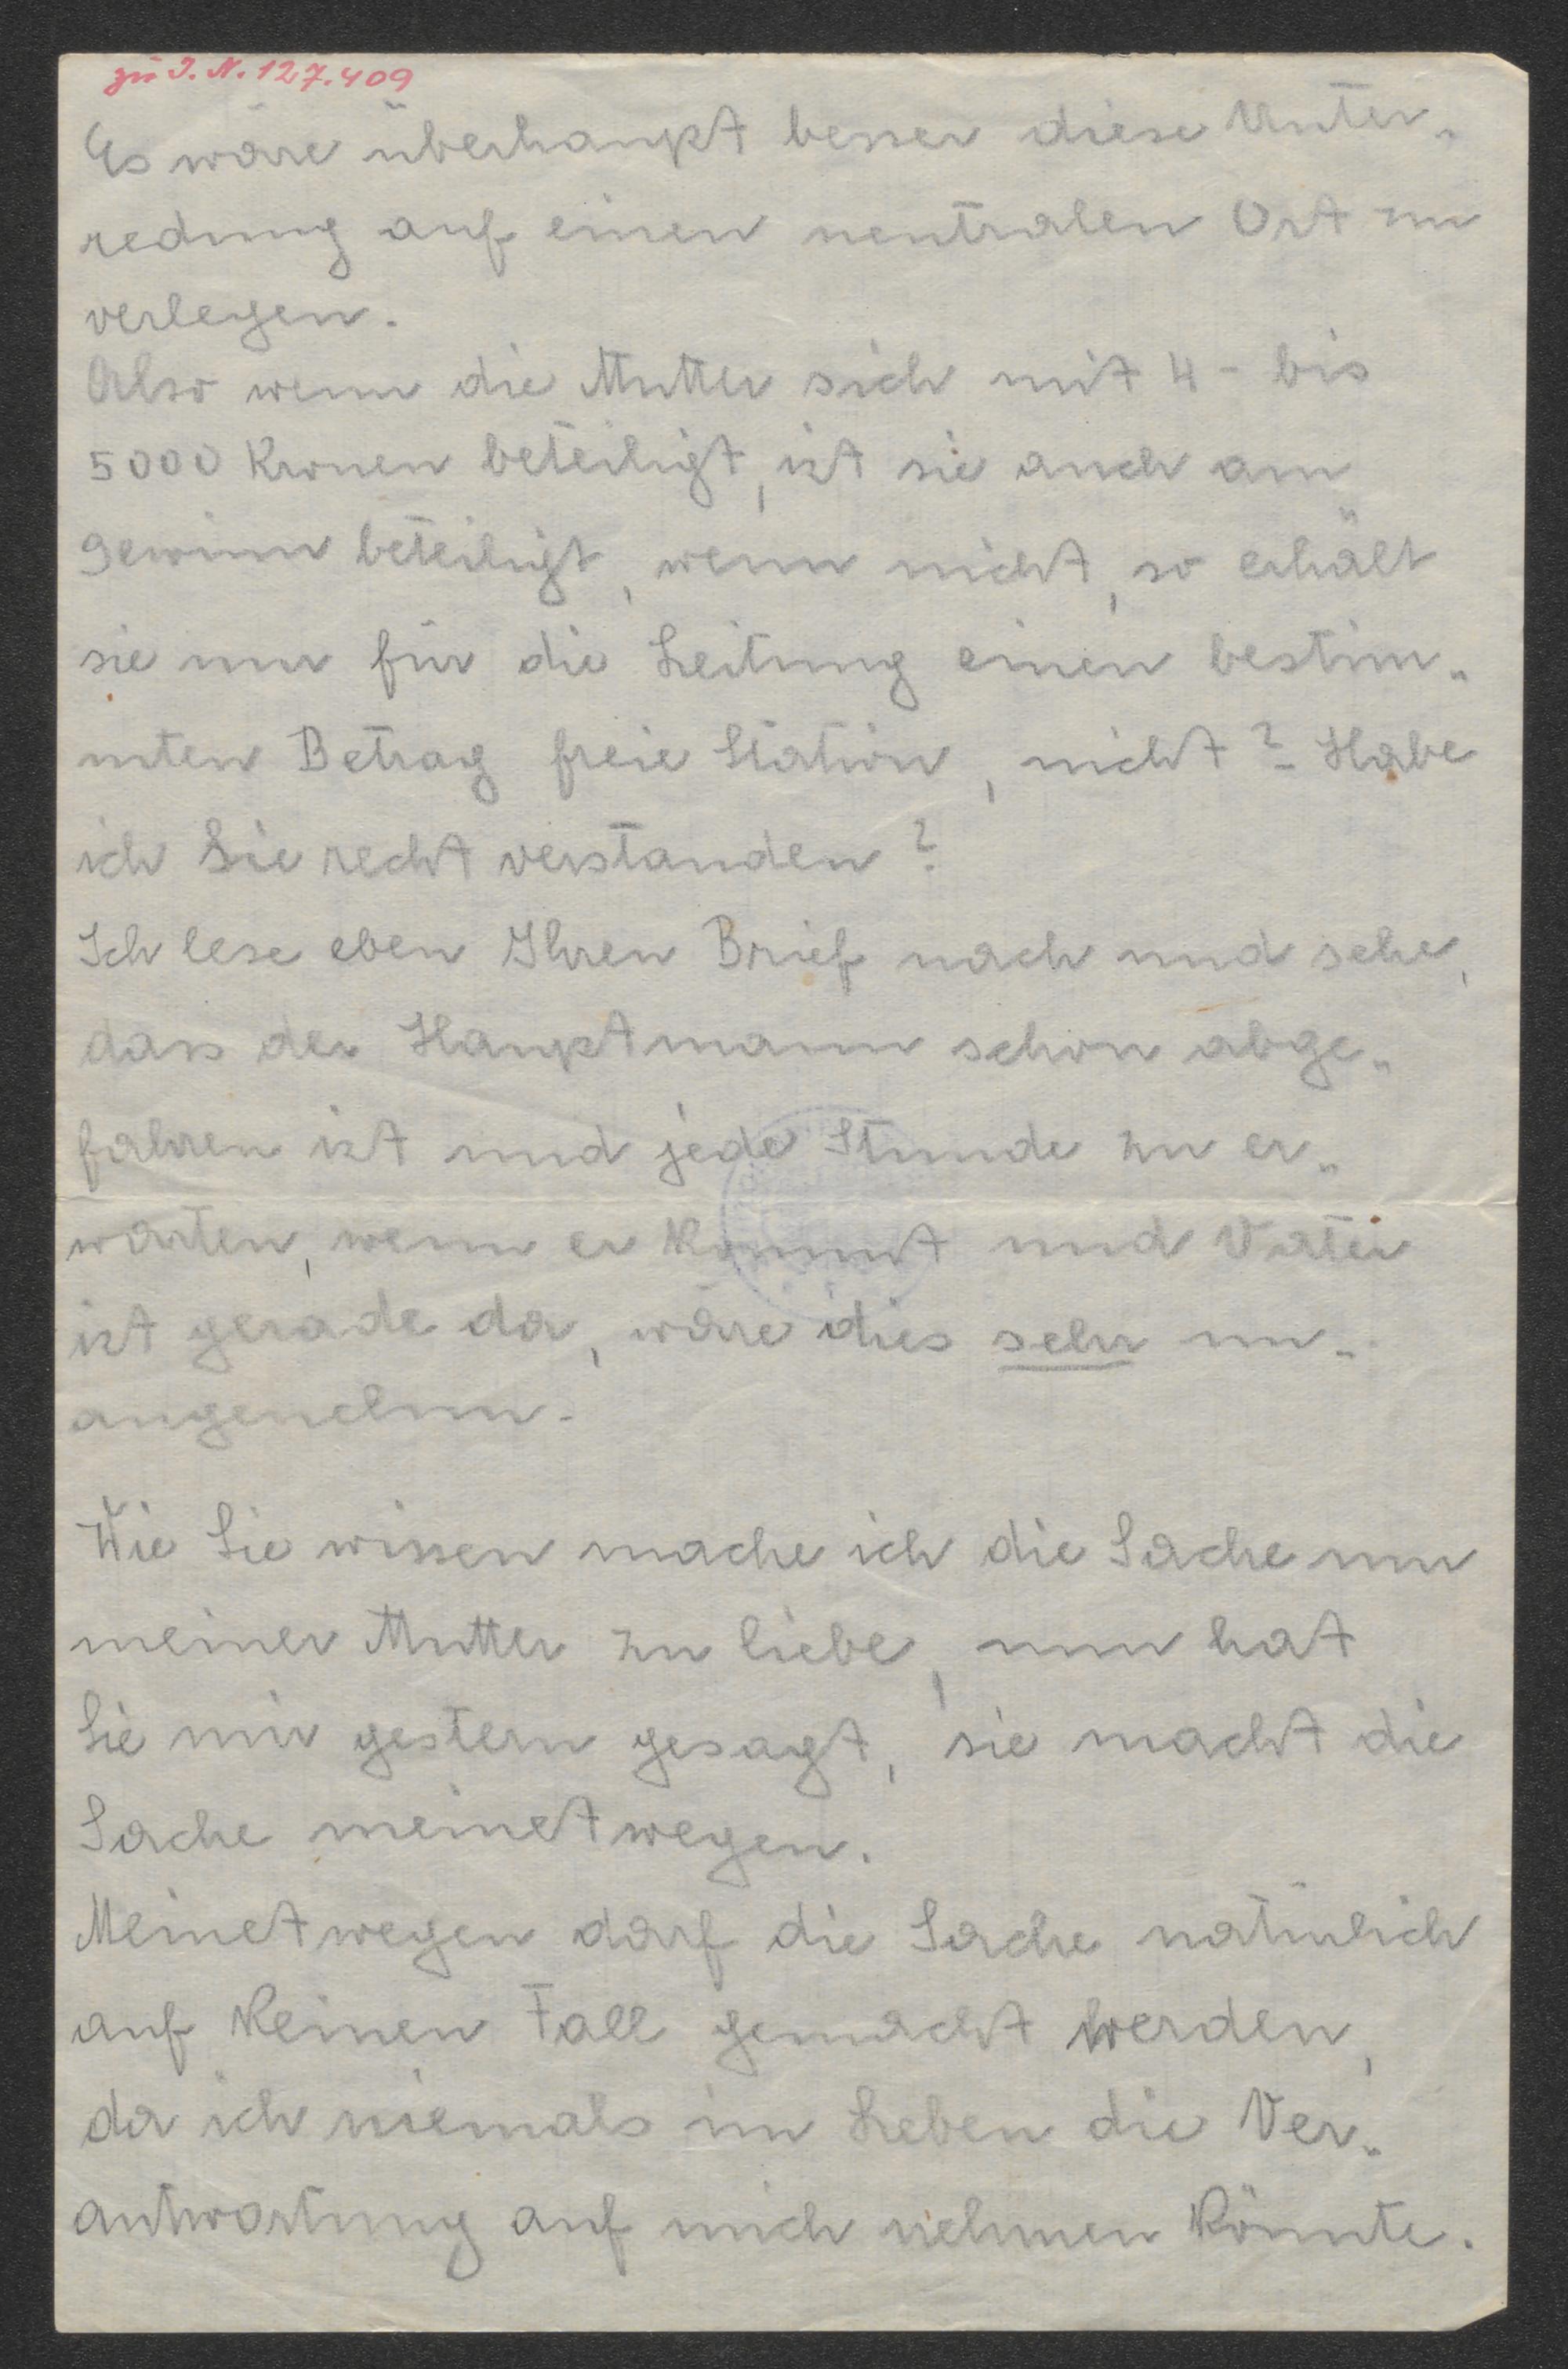 zu I. N. 127.409
Es wäre überhaupt besser diese Unter„
redung auf einen neutralen Ort zu
verlegen.
Also wenn die Mutter sich mit 4 - bis
5000 Kronen beteiligt, ist sie auch am
Gewinn beteiligt, wenn nicht, so erhält
sie nur für die Leitung einen bestim„
mten Betrag freie Station, nicht? - Habe
ich Sie recht verstanden?
Ich lese eben Ihren Brief nach und sehe,
dass der Hauptmann schon abge„
fahren ist und jede Stunde zu er„
warten, wenn er kommt und Vater
ist gerade da, wäre dies sehr un„
angenehm.
Wie Sie wissen mache ich die Sache nur
meiner Mutter zu liebe, nun hat
Sie mir gestern gesagt, sie macht die
Sache meinetwegen.
Meinetwegen darf die Sache natürlich
auf keinen Fall gemacht werden,
da ich niemals im Leben die Ver„
antwortung auf mich nehmen könnte.